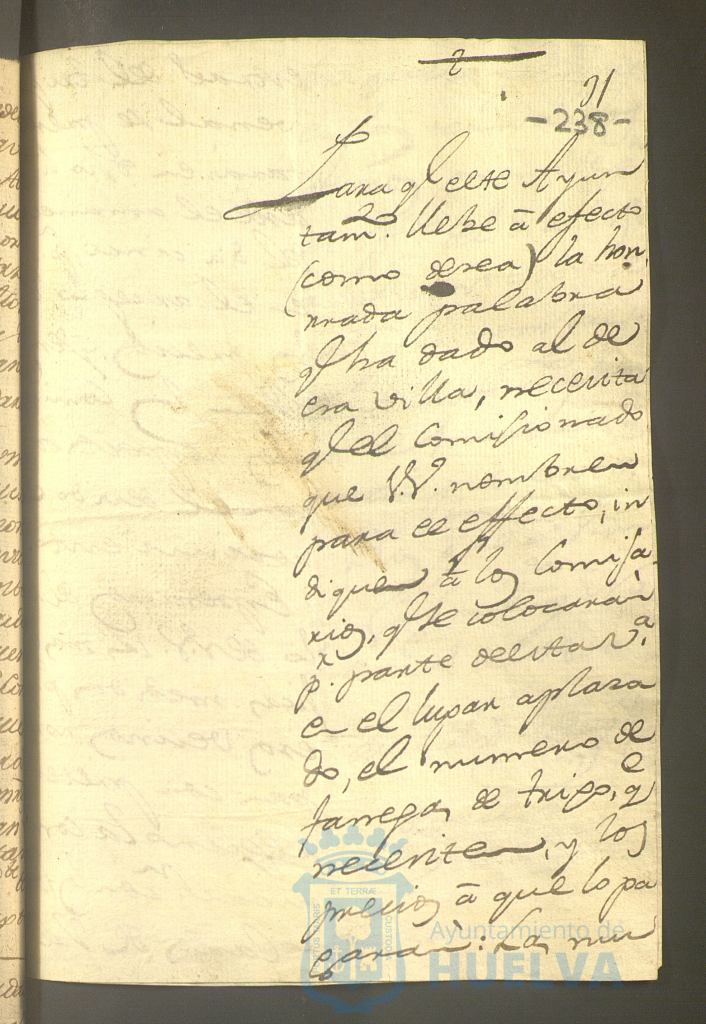 2
91
-238-
Para q.e este Ayun
tam.to llebe â efecto
(como desea) la hon
rrada palabra
q.e ha dado al de
esa villa, necesita
q.e el Comisionado
que V.V. nombren
para el effecto, in
diquen â los Comisa
rios, q.e se colocaran
p.r parte de esta v.a
en el lugar aplaza
do, el numero de
fanegas de trigo, q.e
necesiten, y los
precios â que lo pa
garan: Las mu
ET TERRÆ
Ayuntamiento de
HUELVA